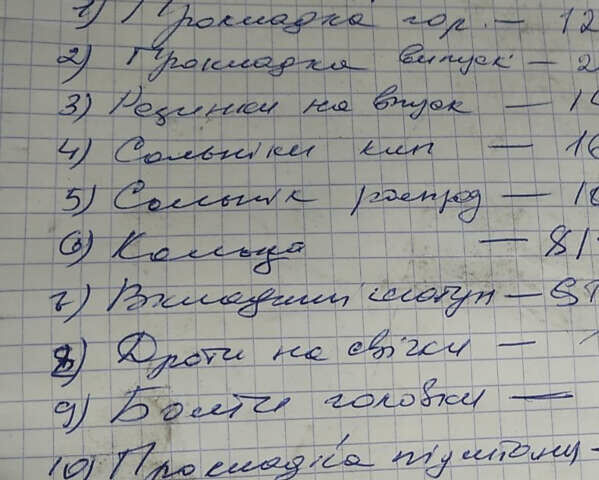 1) Прокладка гор. — 12
2) Прокладка випуск — 2
3) Резинки на впуск — 1
4) Сольніки клп — 16
5) Сольнік розпрод — 1
6) Кольца — 81
7) Вкладиши шатун — 5
8) Дроти на свічки —
9) Болти головки —
10) Прокладка підштани -